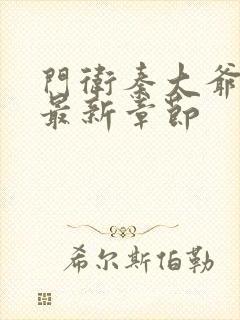 門衛秦大爺
最新章節
希尔斯伯勒